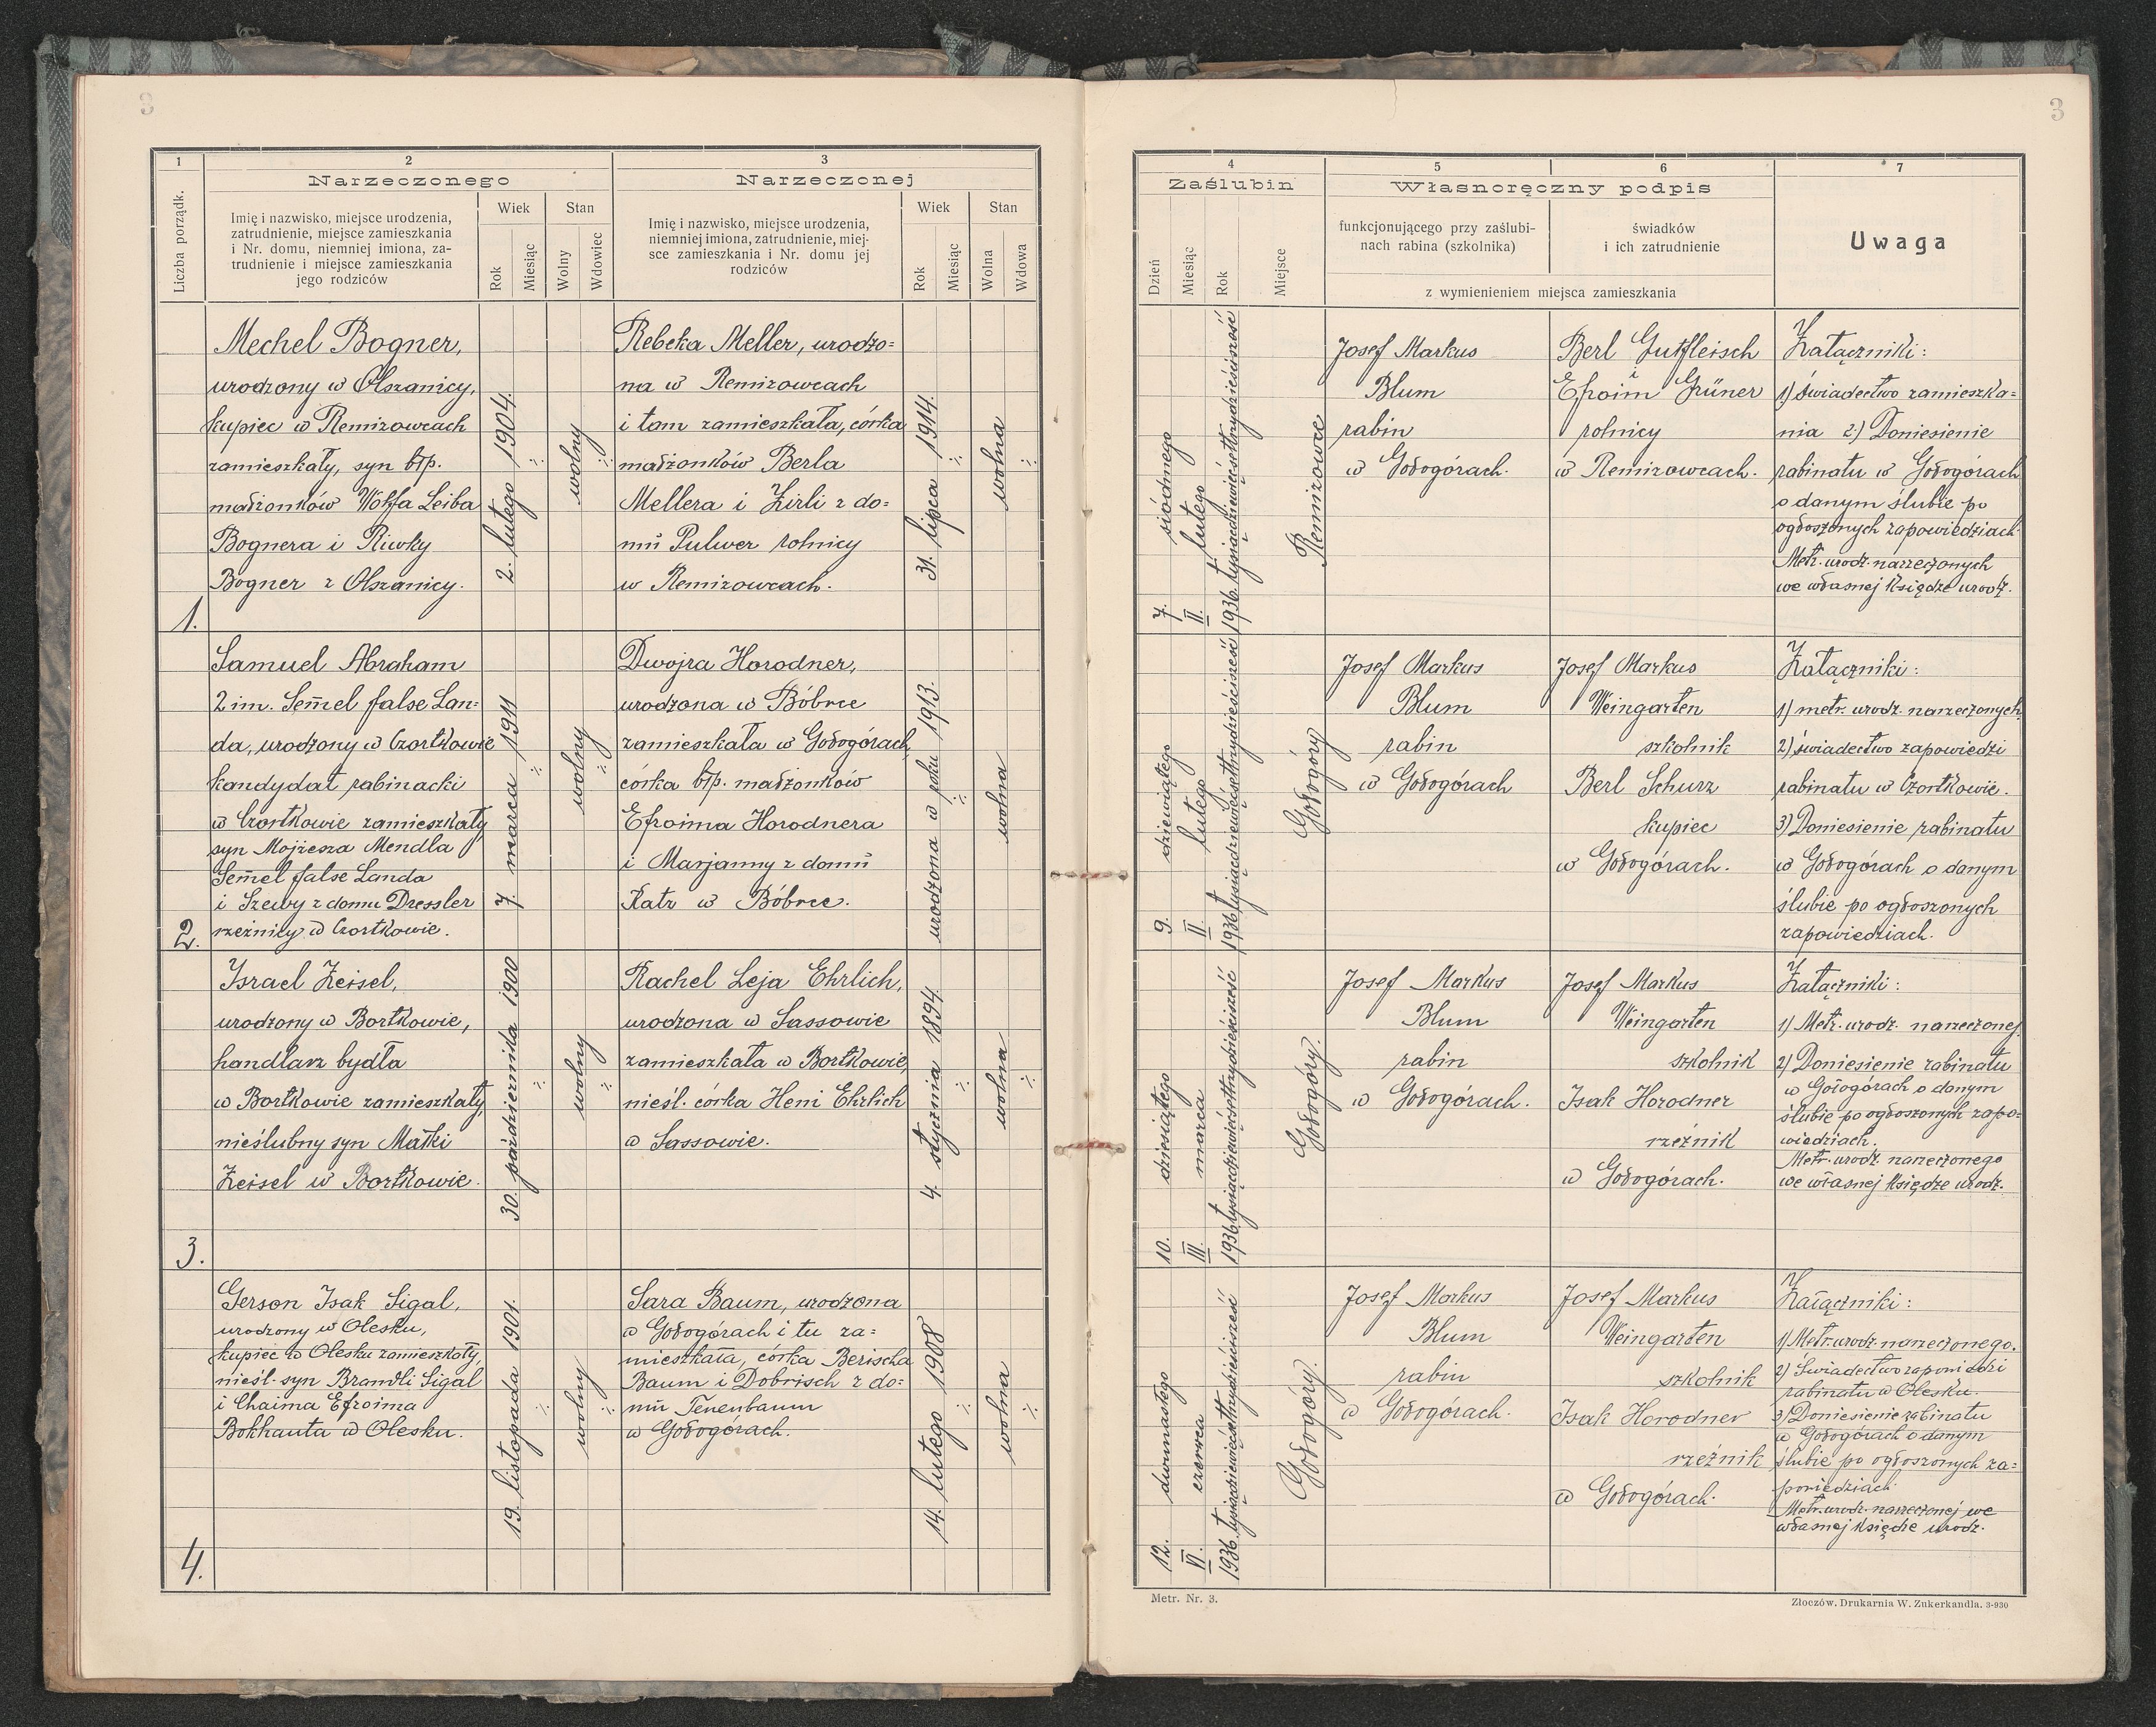 3
1
2
3
Narzeczonego
Narzeczonej
Liczba porządk.
Imię i nazwisko, miejsce urodzenia,
zatrudnienie, miejsce zamieszkania
i Nr. domu, niemniej imiona, za-
trudnienie i miejsce zamieszkania
jego rodziców
Wiek
Rok
Miesiąc
Stan
Wolny
Wdowiec
Imię i nazwisko, miejsce urodzenia,
niemniej imiona, zatrudnienie, miej-
sce zamieszkania i Nr. domu jej
rodziców
Wiek
Rok
Miesiąc
Stan
Wolna
Wdowa
1.
Mechel Bogner,
urodzony w Olszanicy,
kupiec w Remizowcach
zamieszkały, syn błp.
małżonków Wolfa Leiba
Bognera i Riwky
Bogner z Olszanicy.
2. lutego 1904.
wolny
Rebeka Meller, urodzo=
na w Remizowcach
i tam zamieszkała, córka
małżonków Berla
Mellera i Zirli z do=
mu Pulwer rolnicy
w Remizowcach.
31. lipca 1914.
wolna
2.
Samuel Abraham
2 im. Semel false Lan=
da, urodzony w Czortkowie
kandydat rabinacki
w Czortkowie zamieszkały
syn Mojżesza Mendla
Semel false Landa
i Szewy z domu Dressler
rzeźnicy w Czortkowie.
7. marca 1911
wolny
Dwojra Horodner,
urodzona w Bóbrce
zamieszkała w Gołogórach,
córka błp. małżonków
Efroima Horodnera
i Marjanny z domu
Katz w Bóbrce.
urodzona w roku 1913.
wolna
3.
Israel Zeisel,
urodzony w Bortkowie,
handlarz bydła
w Bortkowie zamieszkały,
nieślubny syn Małki
Zeisel w Bortkowie.
30. października 1900
wolny
Rachel Leja Ehrlich,
urodzona w Sassowie
zamieszkała w Bortkowie,
nieśl. córka Heni Ehrlich
w Sassowie.
4. stycznia 1894.
wolna
4.
Gerson Isak Sigal,
urodzony w Olesku,
kupiec w Olesku zamieszkały,
nieśl. syn Brandli Sigal
i Chaima Efroima
Bokhauta w Olesku.
19. listopada 1901.
wolny
Sara Baum, urodzona
w Gołogórach i tu za=
mieszkała, córka Berischa
Baum i Dobrisch z do=
mu Tenenbaum
w Gołogórach.
14. lutego 1908
wolna
3
4
5
6
7
Zaślubin
Własnoręczny podpis
Uwaga
Dzień
Miesiąc
Rok
Miejsce
funkcjonującego przy zaślubi-
nach rabina (szkolnika)
świadków
i ich zatrudnienie
z wymienieniem miejsca zamieszkania
7. siódmego
II. lutego
1936. tysiącdziewięćsettrzydzieściszesć
Remizowce
Josef Markus
Blum
rabin
w Gołogórach.
Berl Gutfleisch
i
Efroim Grüner
rolnicy
w Remizowcach.
Załączniki:
1) świadectwo zamieszka=
nia 2.) Doniesienie
rabinatu w Gołogórach
o danym ślubie po
ogłoszonych zapowiedziach
Metr. urodz. narzeczonych
we własnej księdze urodz.
9. dziewiątego
II. lutego
1936. tysiącdziewięćsettrzydzieścisześć
Gołogóry
Josef Markus
Blum
rabin
w Gołogórach
Josef Markus
Weingarten
szkolnik
Berl Schurz
kupiec
w Gołogórach.
Załączniki:
1) metr. urodz. narzeczonych,
2) świadectwo zapowiedzi
rabinatu w Czortkowie.
3) Doniesienie rabinatu
w Gołogórach o danym
ślubie po ogłoszonych
zapowiedziach.
10. dziesiątego
III. marca
1936. tysiącdziewięćsettrzydzieścisześć
Gołogóry.
Josef Markus
Blum
rabin
w Gołogórach.
Josef Markus
Weingarten
szkolnik
Isak Horodner
rzeźnik
w Gołogórach.
Załączniki:
1) Metr. urodz. narzeczonej.
2) Doniesienie rabinatu
w Gołogórach o danym
ślubie po ogłoszonych zapo=
wiedziach.
Metr. urodz. narzeczonego
we własnej księdze urodz.
12. dwunastego
VI. czerwca
1936. tysiącdziewięćsettrzydzieścisześć
Gołogóry.
Josef Markus
Blum
rabin
w Gołogórach.
Josef Markus
Weingarten
szkolnik
Isak Horodner
rzeźnik
w Gołogórach.
Załączniki:
1) Metr. urodz. narzeczonego.
2) Świadectwo zaponiedzi
rabinatu w Olesku.
3) Doniesienie rabinatu
w Gołogórach o danym
ślubie po ogłoszonych za=
poniedziach.
Metr. urodz. narzeczonej we
własnej księdze urodz.
Metr. Nr. 3.
Złoczów, Drukarnia W. Zukerkandla. 3-930